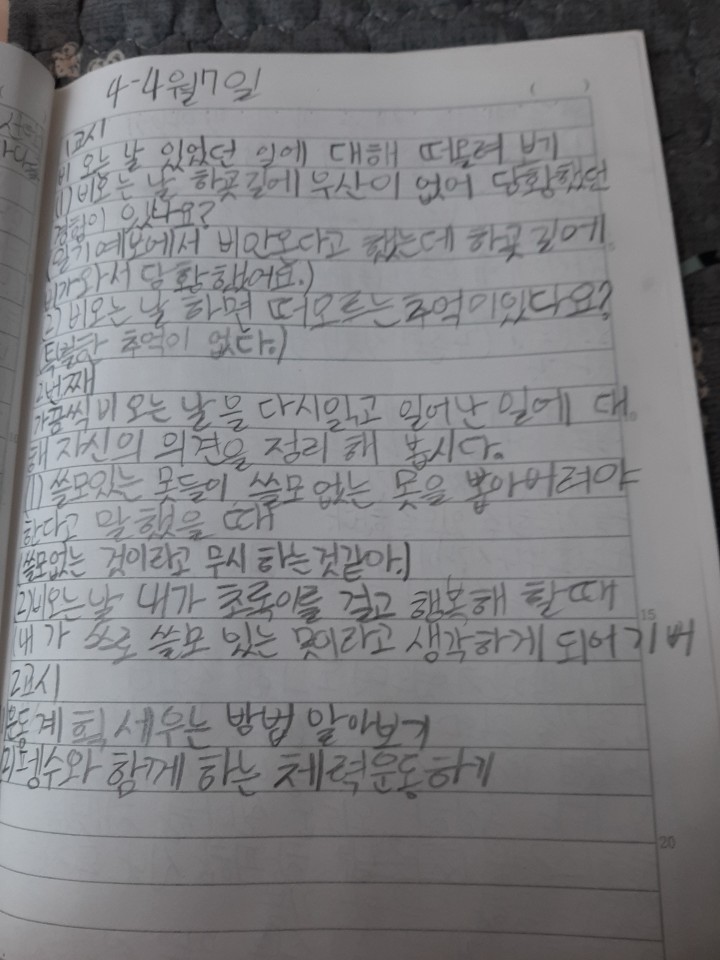 4-4월7일
( )
1교시
비 오는 날 있었던 일에 대해 떠올려 보기
(1) 비오는 날 하굣길에 우산이 없어 당황했던
경험이 있나요?
(일기예보에서 비안온다고 했는데 하굣길에
비가와서 당황했어요.)
2) 비오는 날 하면 떠오르는 추억이있나요?
(특별한 추억이 없다.)
2번째
가끔씩 비 오는 날을 다시읽고 일어난 일에 대
해 자신의 의견을 정리 해 봅시다.
(1) 쓸모있는 못들이 쓸모없는 못을 뽑아버려야
한다고 말했을 때
(쓸모없는 것이라고 무시 하는것같아.)
(2) 비오는날 내가 초록이를 걸고 행복해 할때
(내가 쓰로 쓸모 있는 못이라고 생각하게 되어 기뻐
2교시
운동계획 세우는 방법 알아보기
펭수와 함께 하는 체력운동하기
15
20